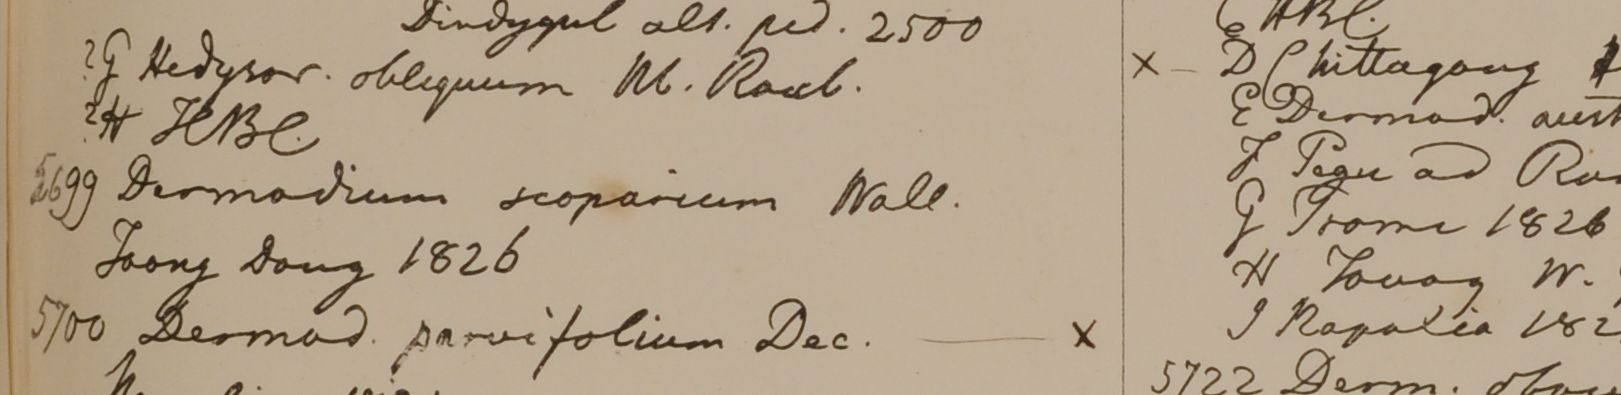 Dindygul alt. ped. 2500
?G Hedysar. obliquum M. Roxb.
?H HBC.
5699 Desmodium scoparium Wall.
Toong Dong 1826
5700 Desmod. parvifolium Dec. — x
HBC.
x – D Chittagong
E Desmod. aust
F Pegu ad
G Prome 1826
H Tavoy W.
I Napalia 182
5722 Desm.